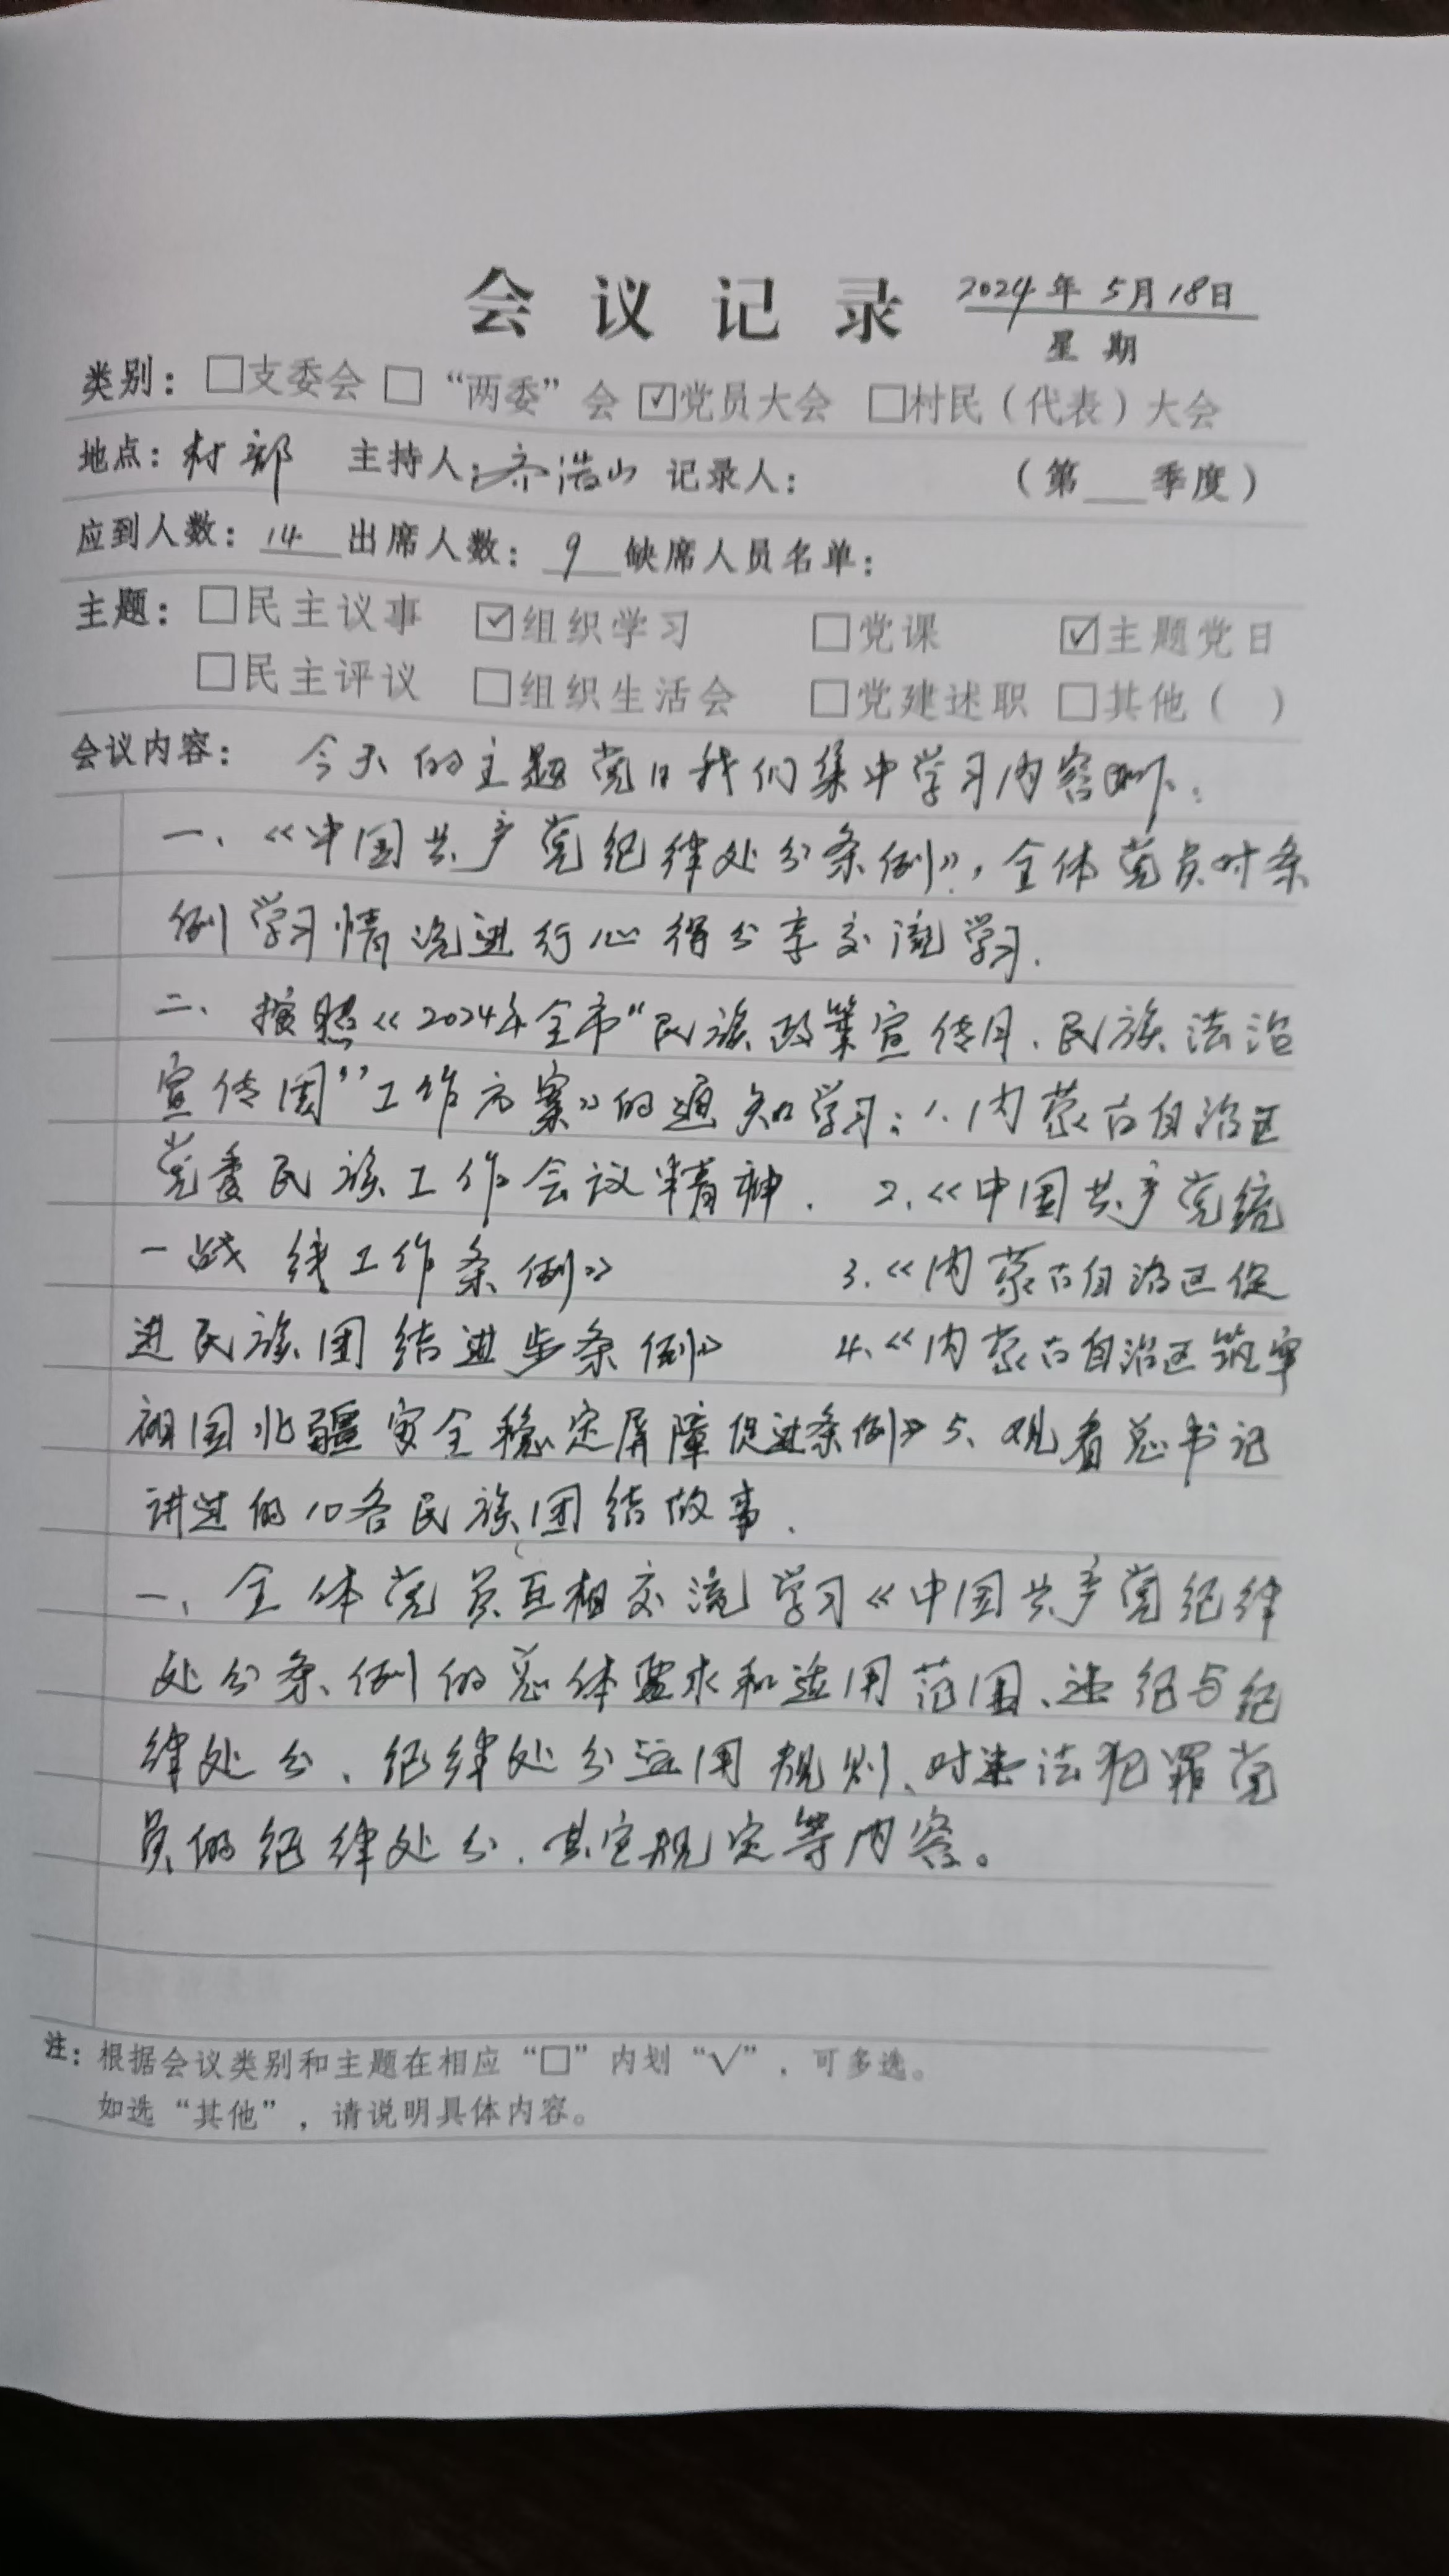 会议记录 2024年5月18日
星期
类别：□支委会 □“两委”会 ☑党员大会 □村民（代表）大会
地点：村部 主持人：乔浩山 记录人： （第___季度）
应到人数：14 出席人数：9 缺席人员名单：
主题：□民主议事 ☑组织学习 □党课 ☑主题党日
□民主评议 □组织生活会 □党建述职 □其他（ ）
会议内容： 今天的主题党日我们集中学习内容如下：
一、《中国共产党纪律处分条例》，全体党员对条
例学习情况进行心得分享交流学习.
二、按照《2024年全市“民族政策宣传月、民族法治
宣传周”工作方案》的通知学习：1.内蒙古自治区
党委民族工作会议精神. 2.《中国共产党统
一战线工作条例》 3.《内蒙古自治区促
进民族团结进步条例》 4、《内蒙古自治区筑牢
祖国北疆安全稳定屏障促进条例》5、观看总书记
讲过的10各民族团结故事.
一、全体党员互相交流学习《中国共产党纪律
处分条例的总体要求和适用范围、违纪与纪
律处分、纪律处分运用规则、对违法犯罪党
员的纪律处分、其它规定等内容。
注：根据会议类别和主题在相应“□”内划“√”，可多选。
如选“其他”，请说明具体内容。